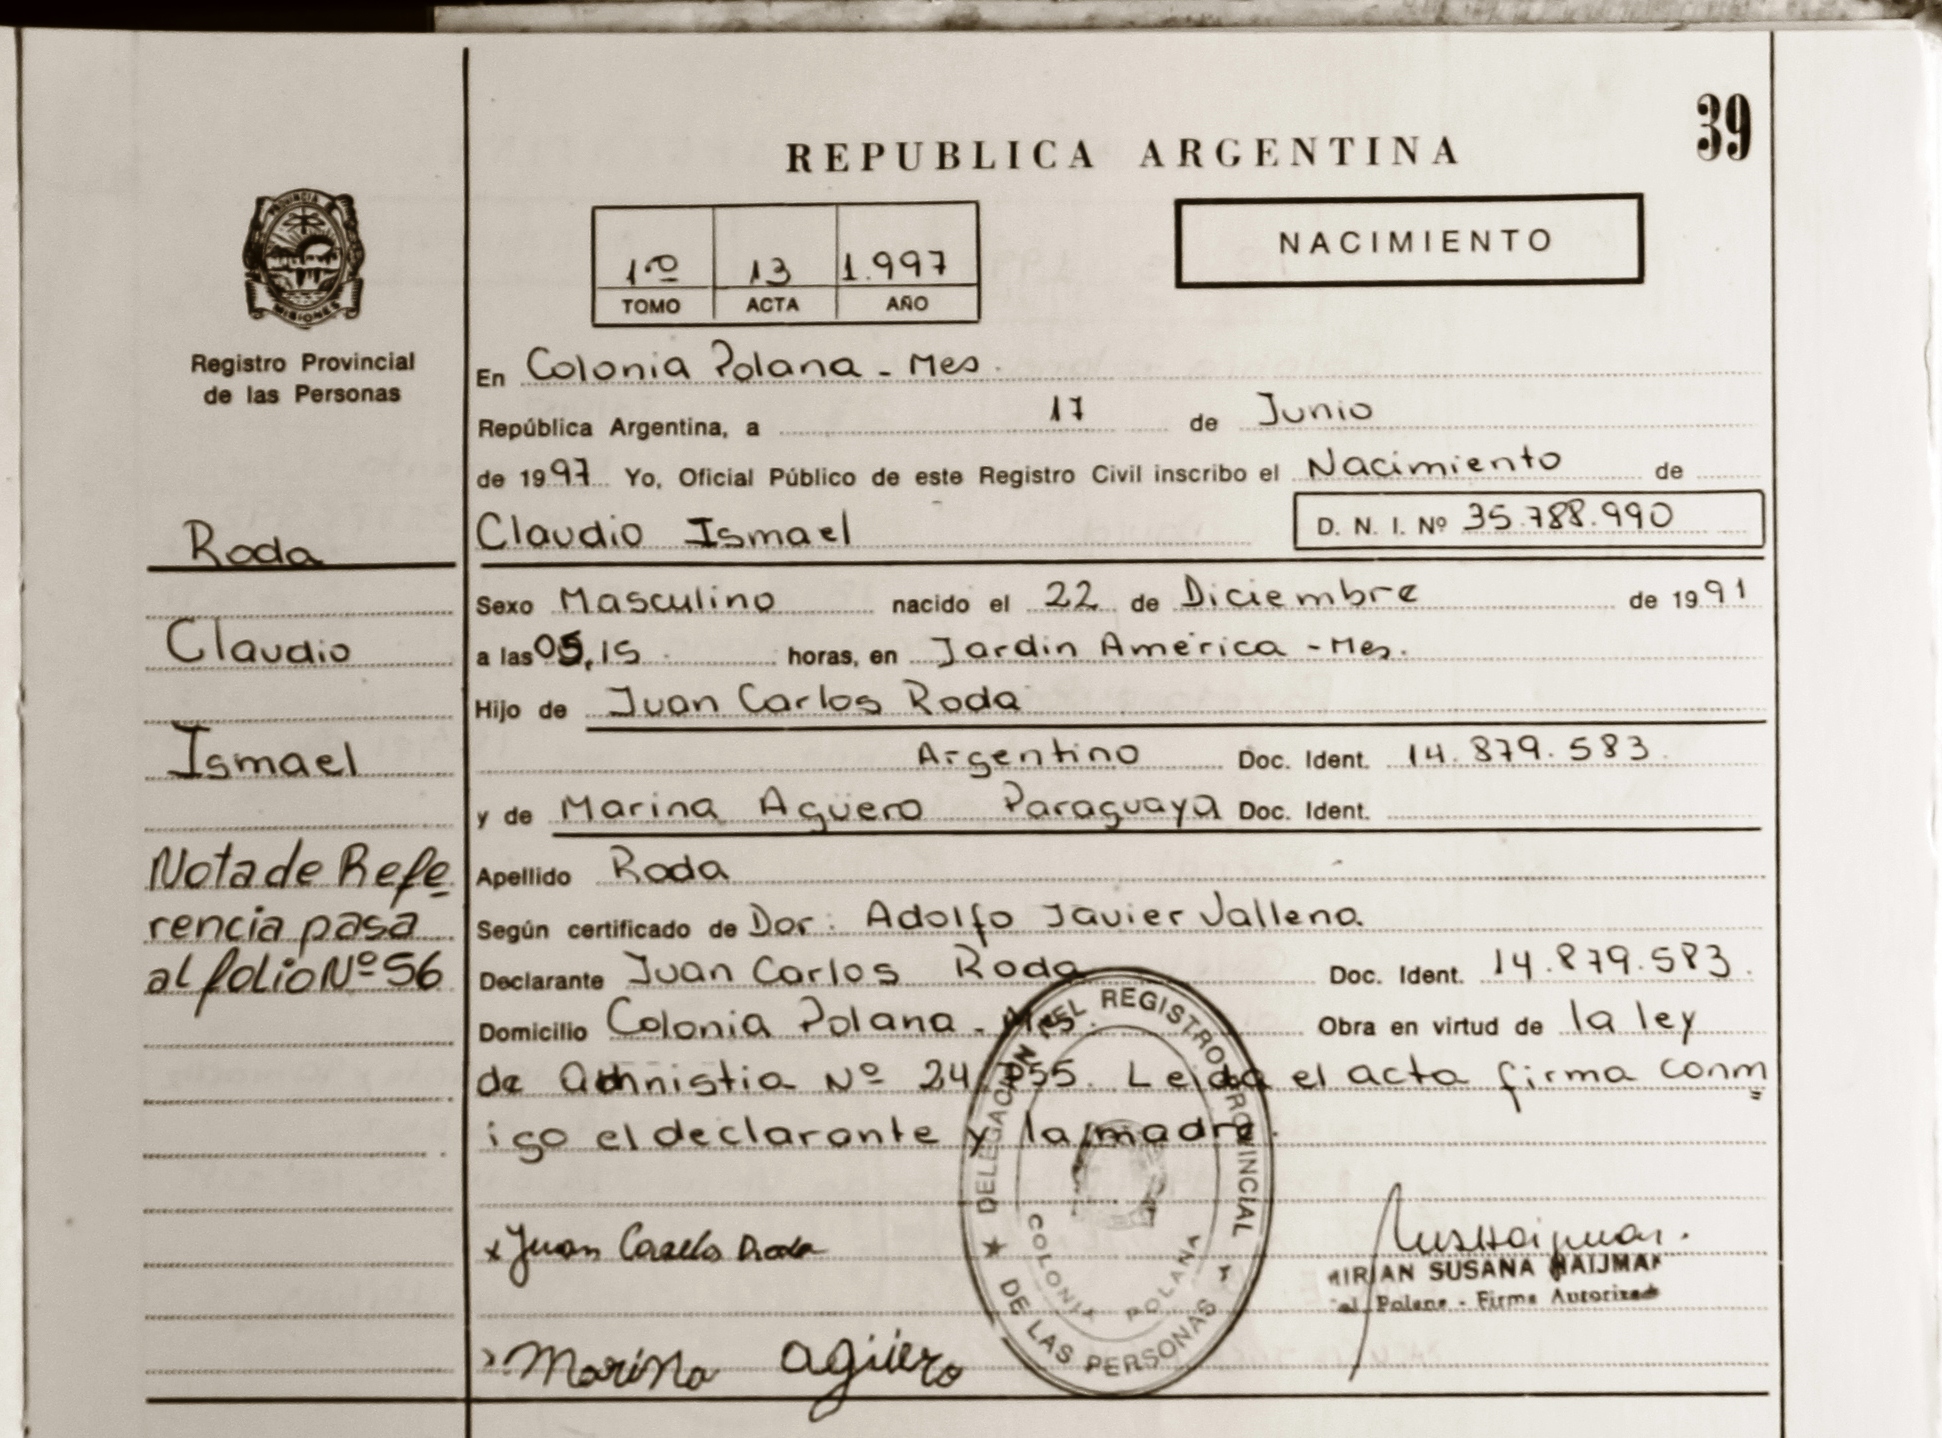 39
REPUBLICA ARGENTINA
PROVINCIA DE
MISIONES
Registro Provincial
de las Personas
1ro 13 1.997
TOMO ACTA AÑO
NACIMIENTO
En Colonia Polana - Mes.
República Argentina, a 17 de Junio
de 1997 Yo, Oficial Público de este Registro Civil inscribo el Nacimiento de
Claudio Ismael
D. N. I. Nº 35.788.990
Roda
Claudio
Ismael
Nota de Refe
rencia pasa
al folio Nº 56
Sexo Masculino nacido el 22 de Diciembre de 1991
a las 05,15 horas, en Jardin América - Mes.
Hijo de Juan Carlos Roda
Argentino Doc. Ident. 14.879.583.
y de Marina Agüero Paraguaya Doc. Ident.
Apellido Roda
Según certificado de Dor: Adolfo Javier Vallena
Declarante Juan Carlos Roda Doc. Ident. 14.879.583.
Domicilio Colonia Polana - Mes. Obra en virtud de la ley
de Admnistia Nº 24.755. Leida el acta firma conm
igo el declarante y la madre.
x Juan Carlos Roda
Marina agüero
DELEGACION DEL REGISTRO PROVINCIAL
DE LAS PERSONAS
COLONIA POLANA
MIRIAN SUSANA HAIJMAN
Polana - Firma Autorizada